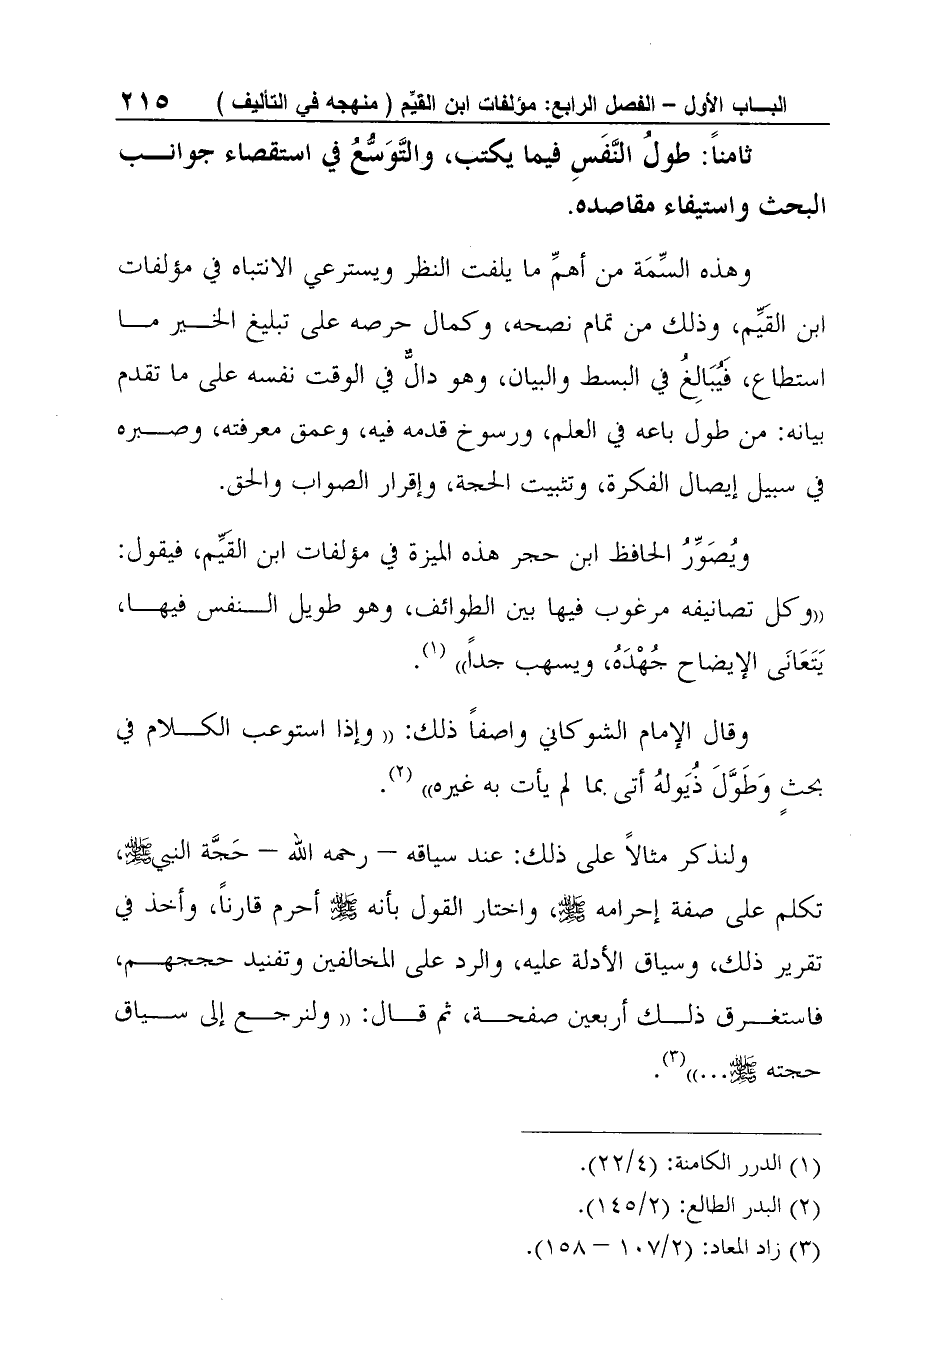 الباب الأول – الفصل الرابع: مؤلفات ابن القيِّم ( منهجه في التأليف ) ٢١٥
ثامناً: طولُ النَّفَسِ فيما يكتب، والتَّوَسُّعُ في استقصاء جوانب
البحث واستيفاء مقاصده.
وهذه السِّمَة من أهمِّ ما يلفت النظر ويسترعي الانتباه في مؤلفات
ابن القَيِّم، وذلك من تمام نصحه، وكمال حرصه على تبليغ الخير ما
استطاع، فَيُبَالِغُ في البسط والبيان، وهو دالٌّ في الوقت نفسه على ما تقدم
بيانه: من طول باعه في العلم، ورسوخ قدمه فيه، وعمق معرفته، وصبره
في سبيل إيصال الفكرة، وتثبيت الحجة، وإقرار الصواب والحق.
ويُصَوِّرُ الحافظ ابن حجر هذه الميزة في مؤلفات ابن القَيِّم، فيقول:
((وكل تصانيفه مرغوب فيها بين الطوائف، وهو طويل النفس فيها،
يَتَعَانَى الإيضاح جُهْدَهُ، ويسهب جداً)) (١).
وقال الإمام الشوكاني واصفاً ذلك: (( وإذا استوعب الكلام في
بحثٍ وَطَوَّلَ ذُيَولهُ أتى بما لم يأت به غيره)) (٢).
ولنذكر مثالاً على ذلك: عند سياقه – رحمه الله – حَجَّة النبيﷺ،
تكلم على صفة إحرامه ﷺ، واختار القول بأنه ﷺ أحرم قارناً، وأخذ في
تقرير ذلك، وسياق الأدلة عليه، والرد على المخالفين وتفنيد حججهم،
فاستغرق ذلك أربعين صفحة، ثم قال: (( ولنرجع إلى سياق
حجته ﷺ...))(٣).
(١) الدرر الكامنة: (٢٢/٤).
(٢) البدر الطالع: (١٤٥/٢).
(٣) زاد المعاد: (١٠٧/٢ – ١٥٨).